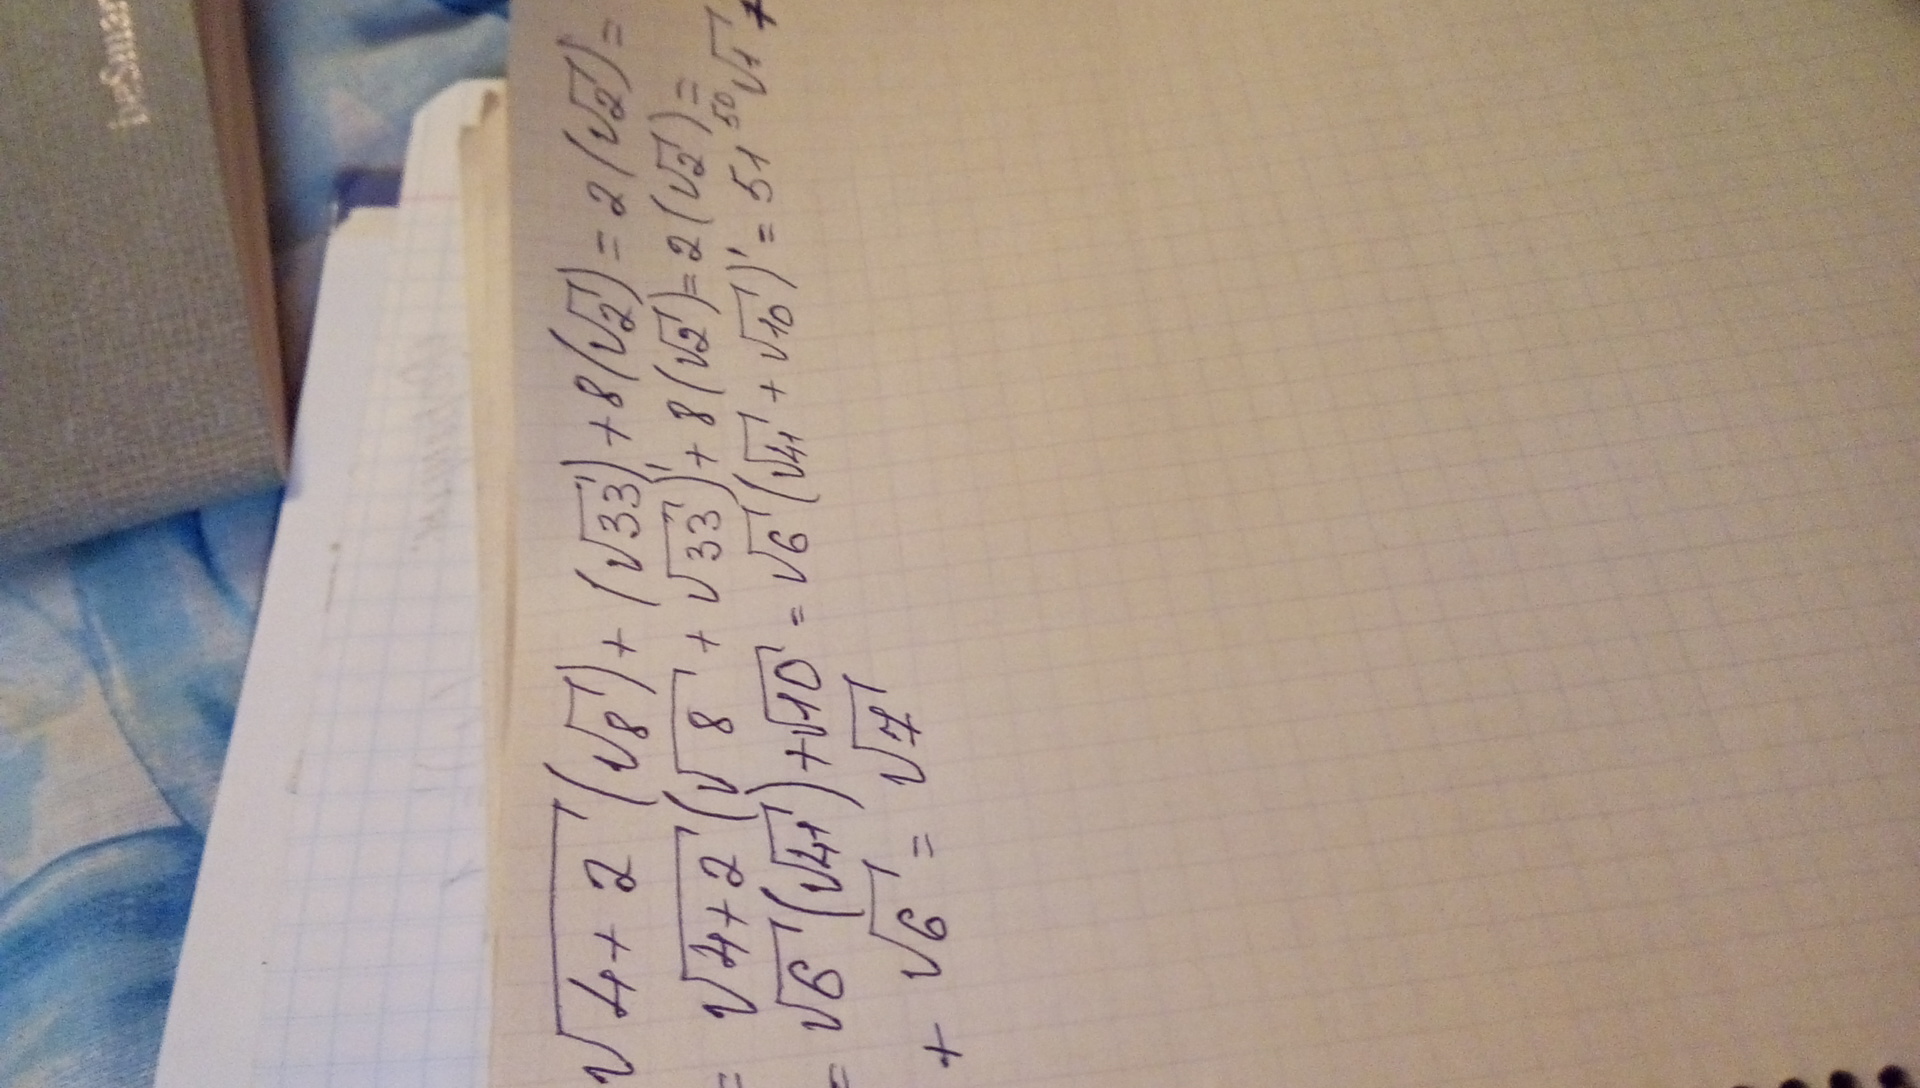 √4+2 (√8) + (√33) + 8(√2) = 2(√2) =
= √4+2 (√8 + √33) + 8(√2) = 2(√2) =
= √6 (√41) + √10 = √6 (√41 + √10) = 51 50√1 +
+ √6 = √7